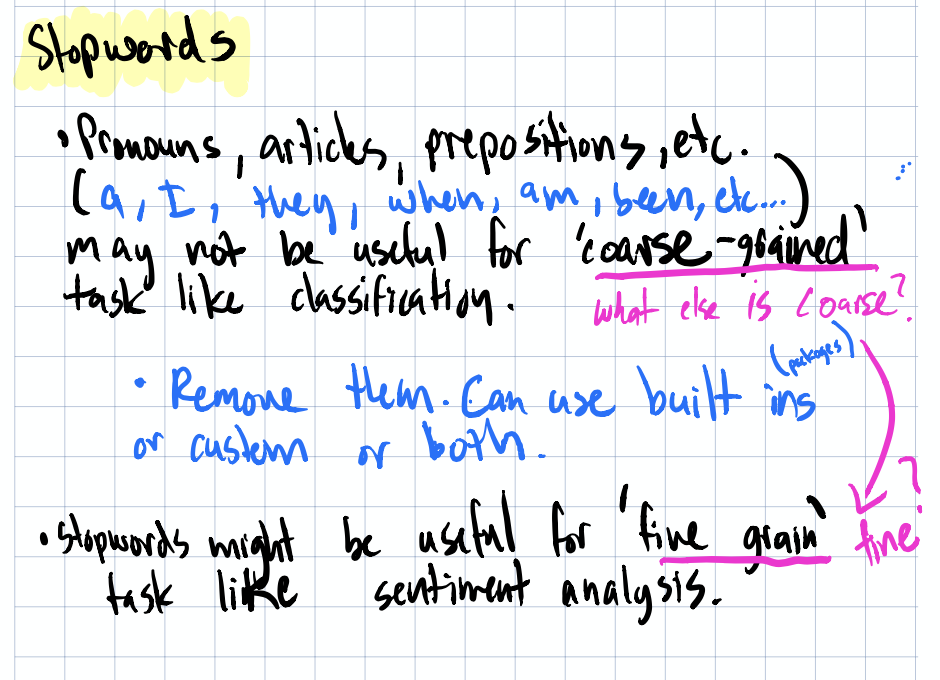 Stopwords
• Pronouns, articles, prepositions, etc.
(a, I, they, when, am, been, etc...)
may not be useful for 'coarse-grained'
task like classification.
what else is coarse?
(packages)
• Remove them. Can use built ins
or custom or both.
• Stopwords might be useful for 'fine grain'
fine?
task like sentiment analysis.